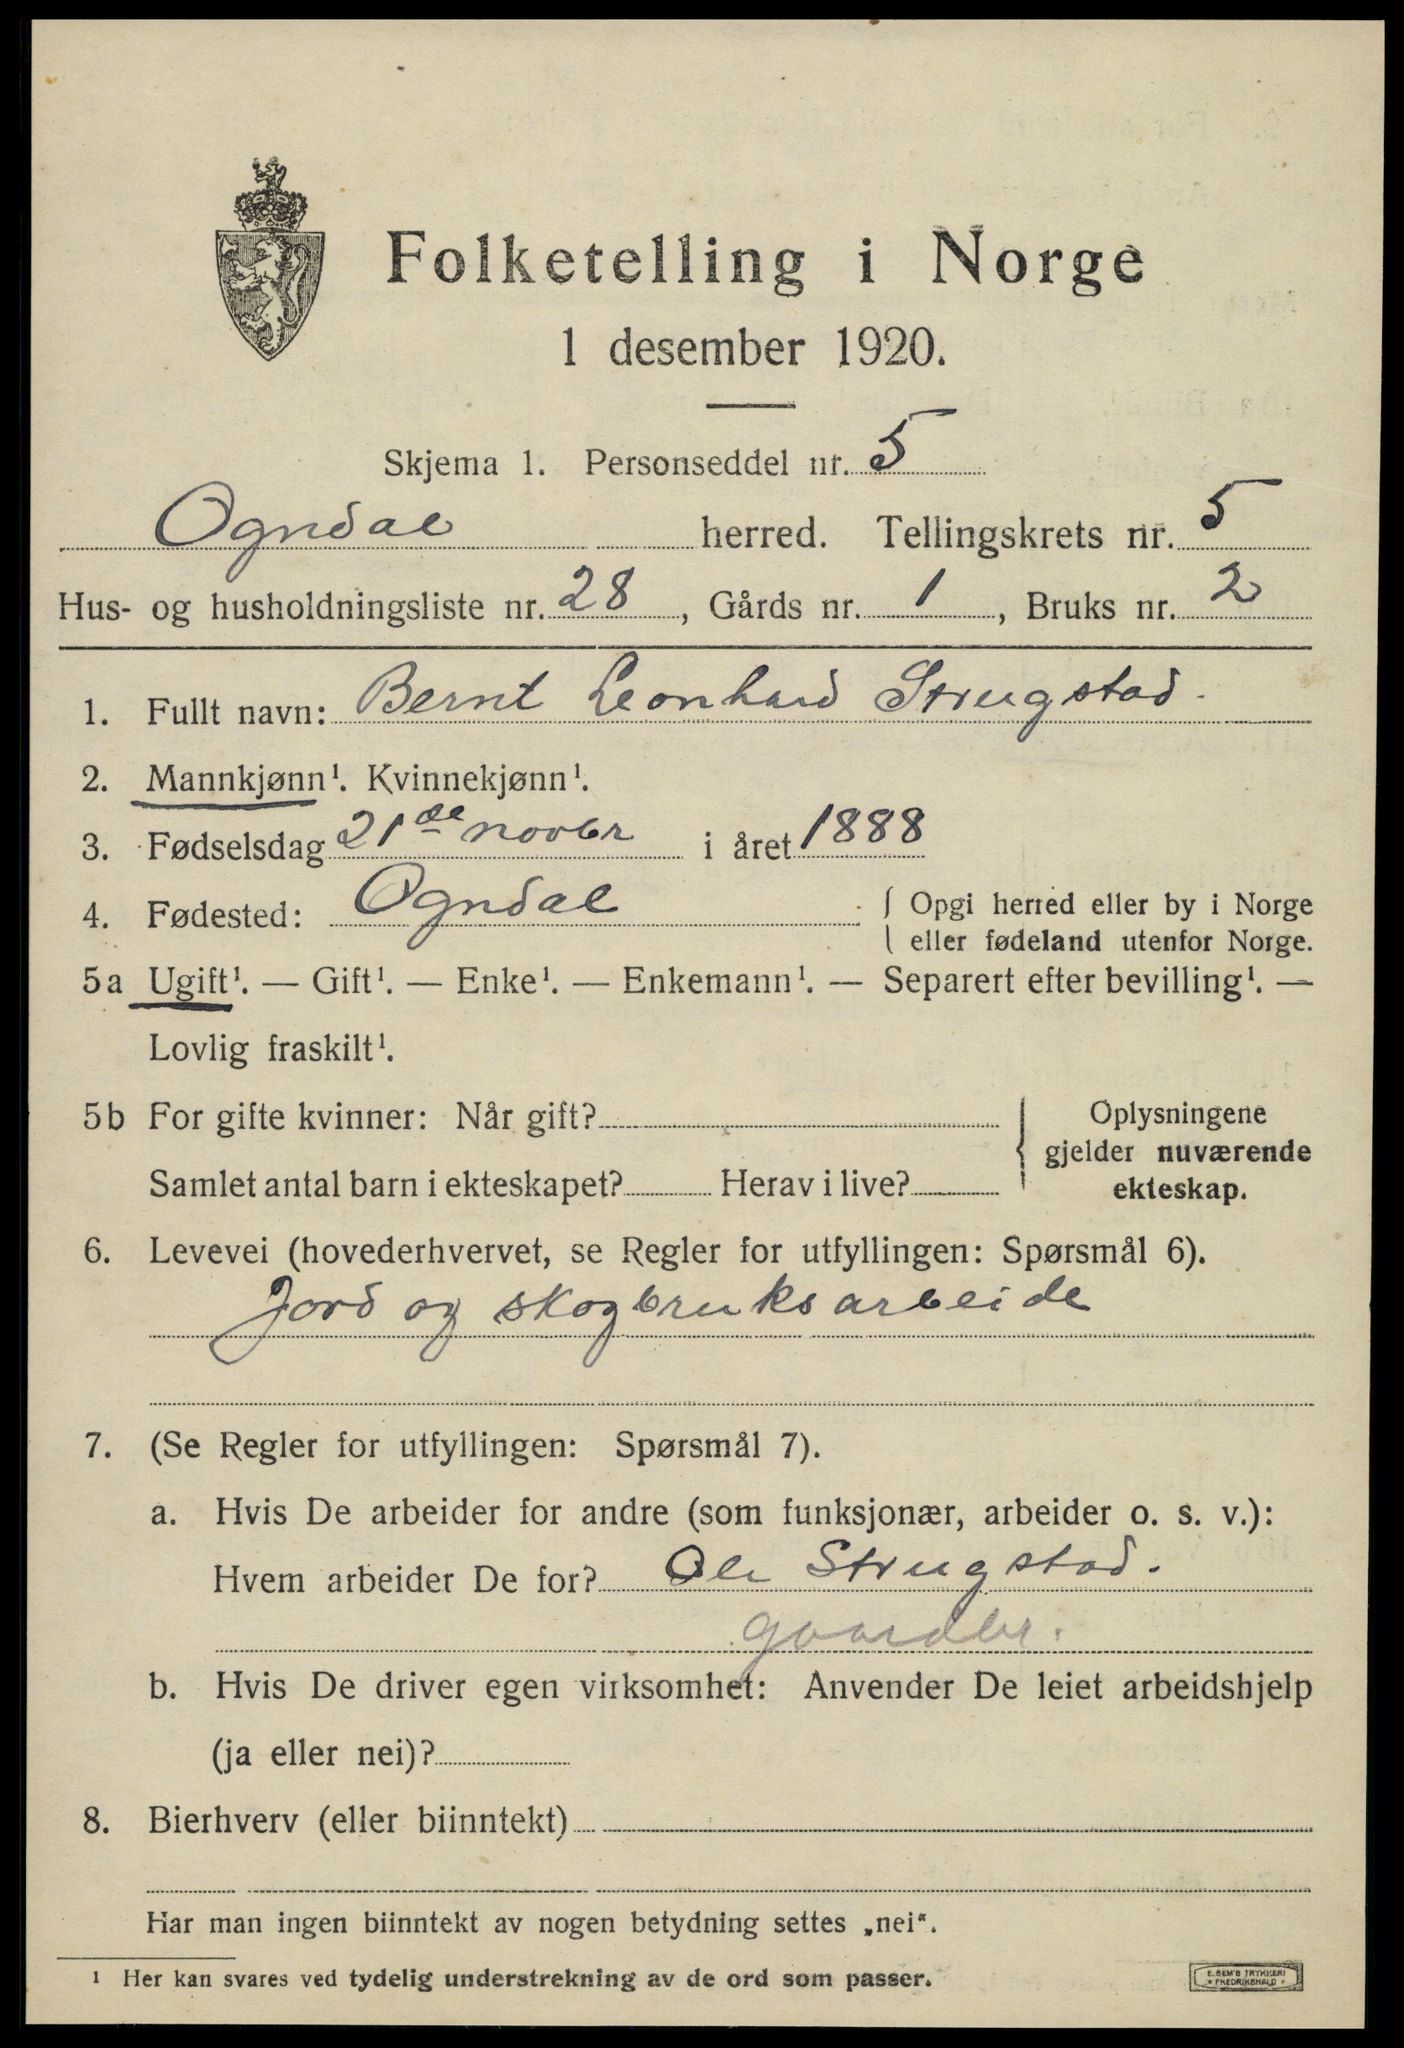 Folketelling i Norge
1 desember 1920.
Skjema 1. Personseddel nr. 5
Ogndal herred. Tellingskrets nr. 5
Hus- og husholdningsliste nr. 28, Gårds nr. 1, Bruks nr. 2
1. Fullt navn: Bernt Leonhard Strugstad.
2. Mannkjønn¹. Kvinnekjønn¹.
3. Fødselsdag 21de novbr i året 1888
4. Fødested: Ogndal { Opgi herred eller by i Norge
eller fødeland utenfor Norge.
5a Ugift¹. — Gift¹. — Enke¹. — Enkemann¹. — Separert efter bevilling¹. —
Lovlig fraskilt¹.
5b For gifte kvinner: Når gift? { Oplysningene
gjelder nuværende
Samlet antal barn i ekteskapet? Herav i live? ekteskap.
6. Levevei (hovederhvervet, se Regler for utfyllingen: Spørsmål 6).
Jord og skogbruksarbeide
7. (Se Regler for utfyllingen: Spørsmål 7).
a. Hvis De arbeider for andre (som funksjonær, arbeider o. s. v.):
Hvem arbeider De for? Ole Strugstad.
gaardbr.
b. Hvis De driver egen virksomhet: Anvender De leiet arbeidshjelp
(ja eller nei)?
8. Bierhverv (eller biinntekt)
Har man ingen biinntekt av nogen betydning settes „nei“.
¹ Her kan svares ved tydelig understrekning av de ord som passer.
E. SEM'S TRYKKERI
* FREDRIKSHALD *